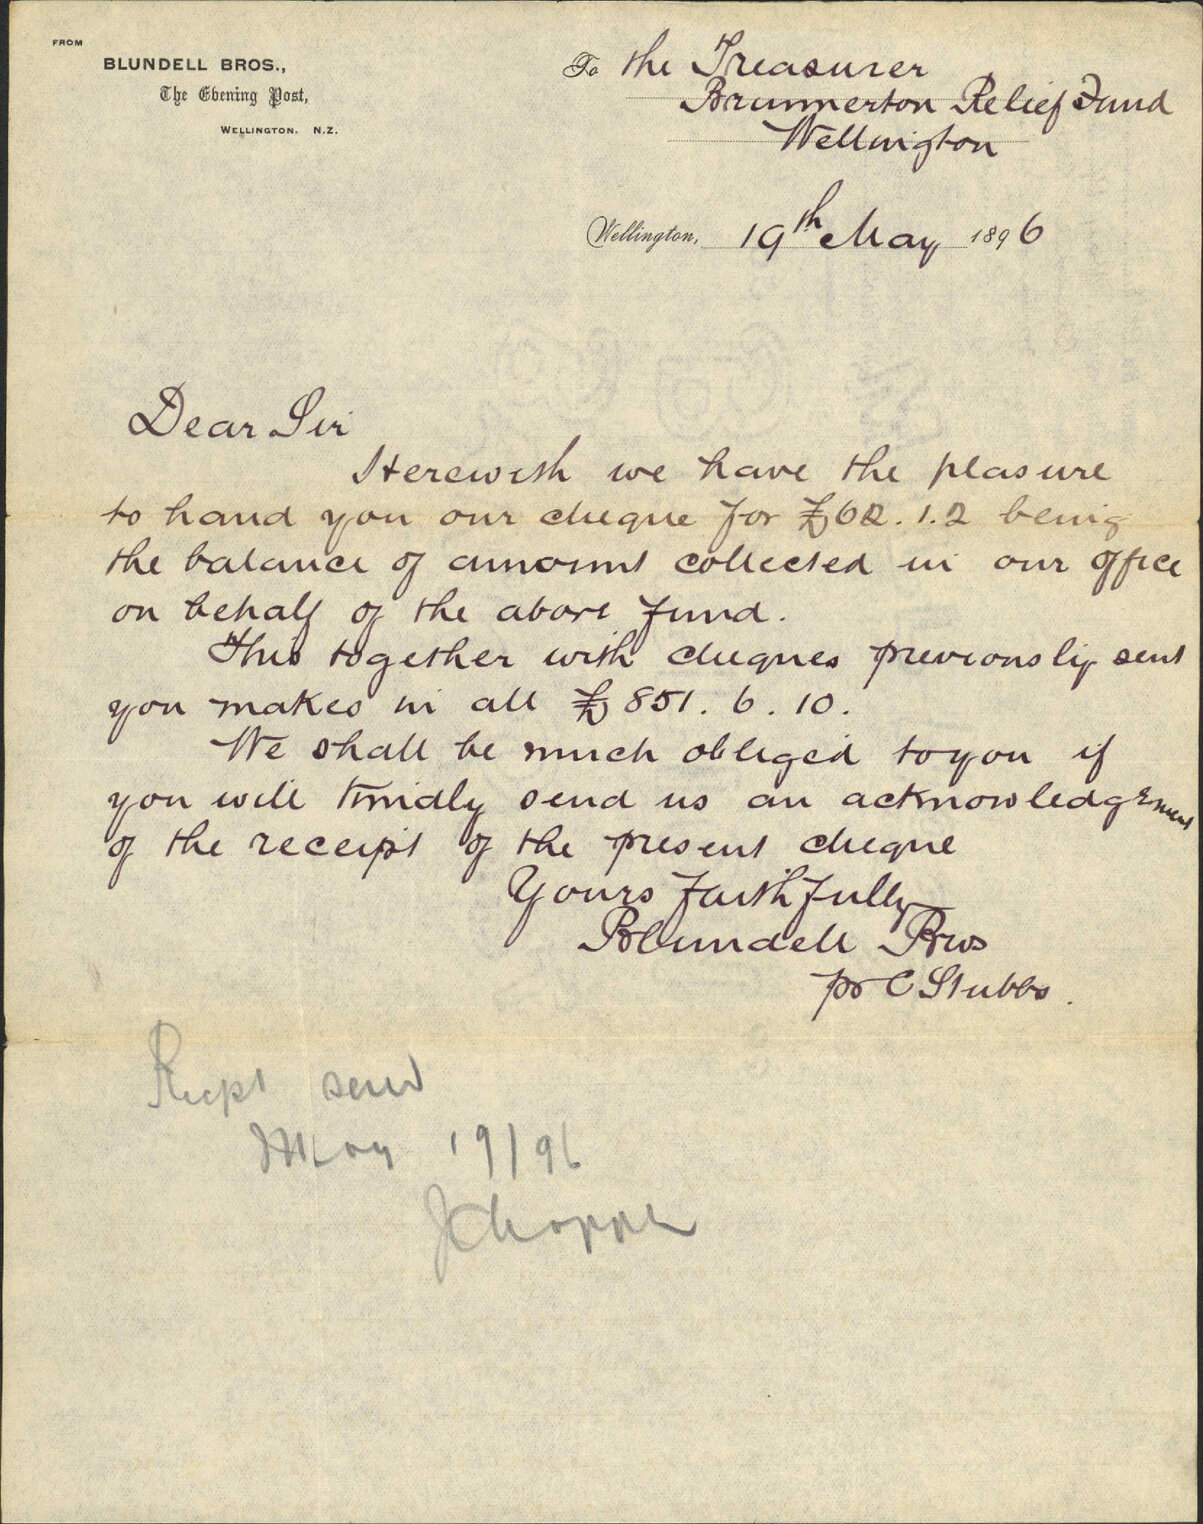 FROM
BLUNDELL BROS.,
The Evening Post,
WELLINGTON. N.Z.
To the Treasurer
Brunnerton Relief Fund
Wellington
Wellington, 19th May 1896
Dear Sir
Herewith we have the pleasure
to hand you our cheque for £62.1.2 being
the balance of amount collected in our office
on behalf of the above fund.
This together with cheques previously sent
you makes in all £851. 6. 10.
We shall be much obliged to you if
you will kindly send us an acknowledgement
of the receipt of the present cheque
Yours faithfully
Blundell Bros
pr C Stubbs.
Recpt send
May 19/96